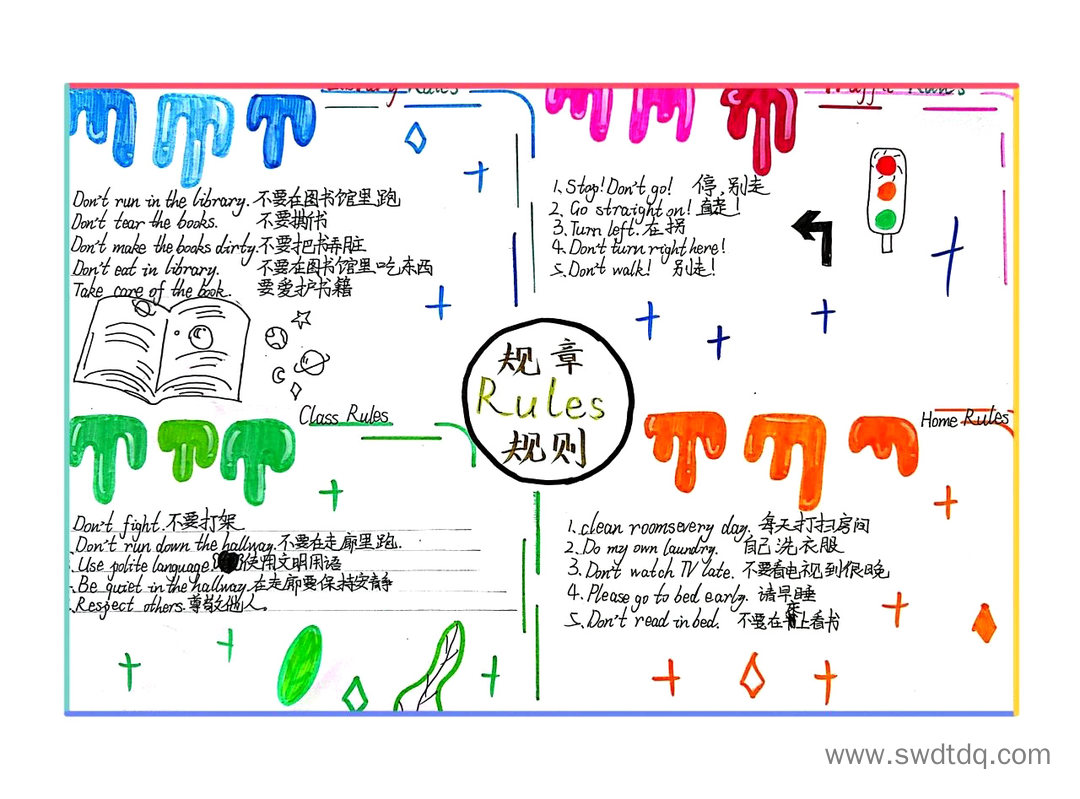 Library Rules
Don't run in the library. 不要在图书馆里跑
Don't tear the books. 不要撕书
Don't make the books dirty. 不要把书弄脏
Don't eat in library. 不要在图书馆里吃东西
Take care of the book. 要爱护书籍
Traffic Rules
1. Stop! Don't go! 停,别走
2. Go straight on! 直走!
3. Turn left. 在拐
4. Don't turn right here!
5. Don't walk! 别走!
规章
Rules
规则
Class Rules
Don't fight. 不要打架
Don't run down the hallway. 不要在走廊里跑.
Use polite language. 使用文明用语
Be quiet in the hallway. 在走廊要保持安静
Respect others. 尊敬他人.
Home Rules
1. clean rooms every day. 每天打扫房间
2. Do my own laundry. 自己洗衣服
3. Don't watch TV late. 不要看电视到很晚
4. Please go to bed early. 请早睡
5. Don't read in bed. 不要在床上看书
www.swdtdq.com